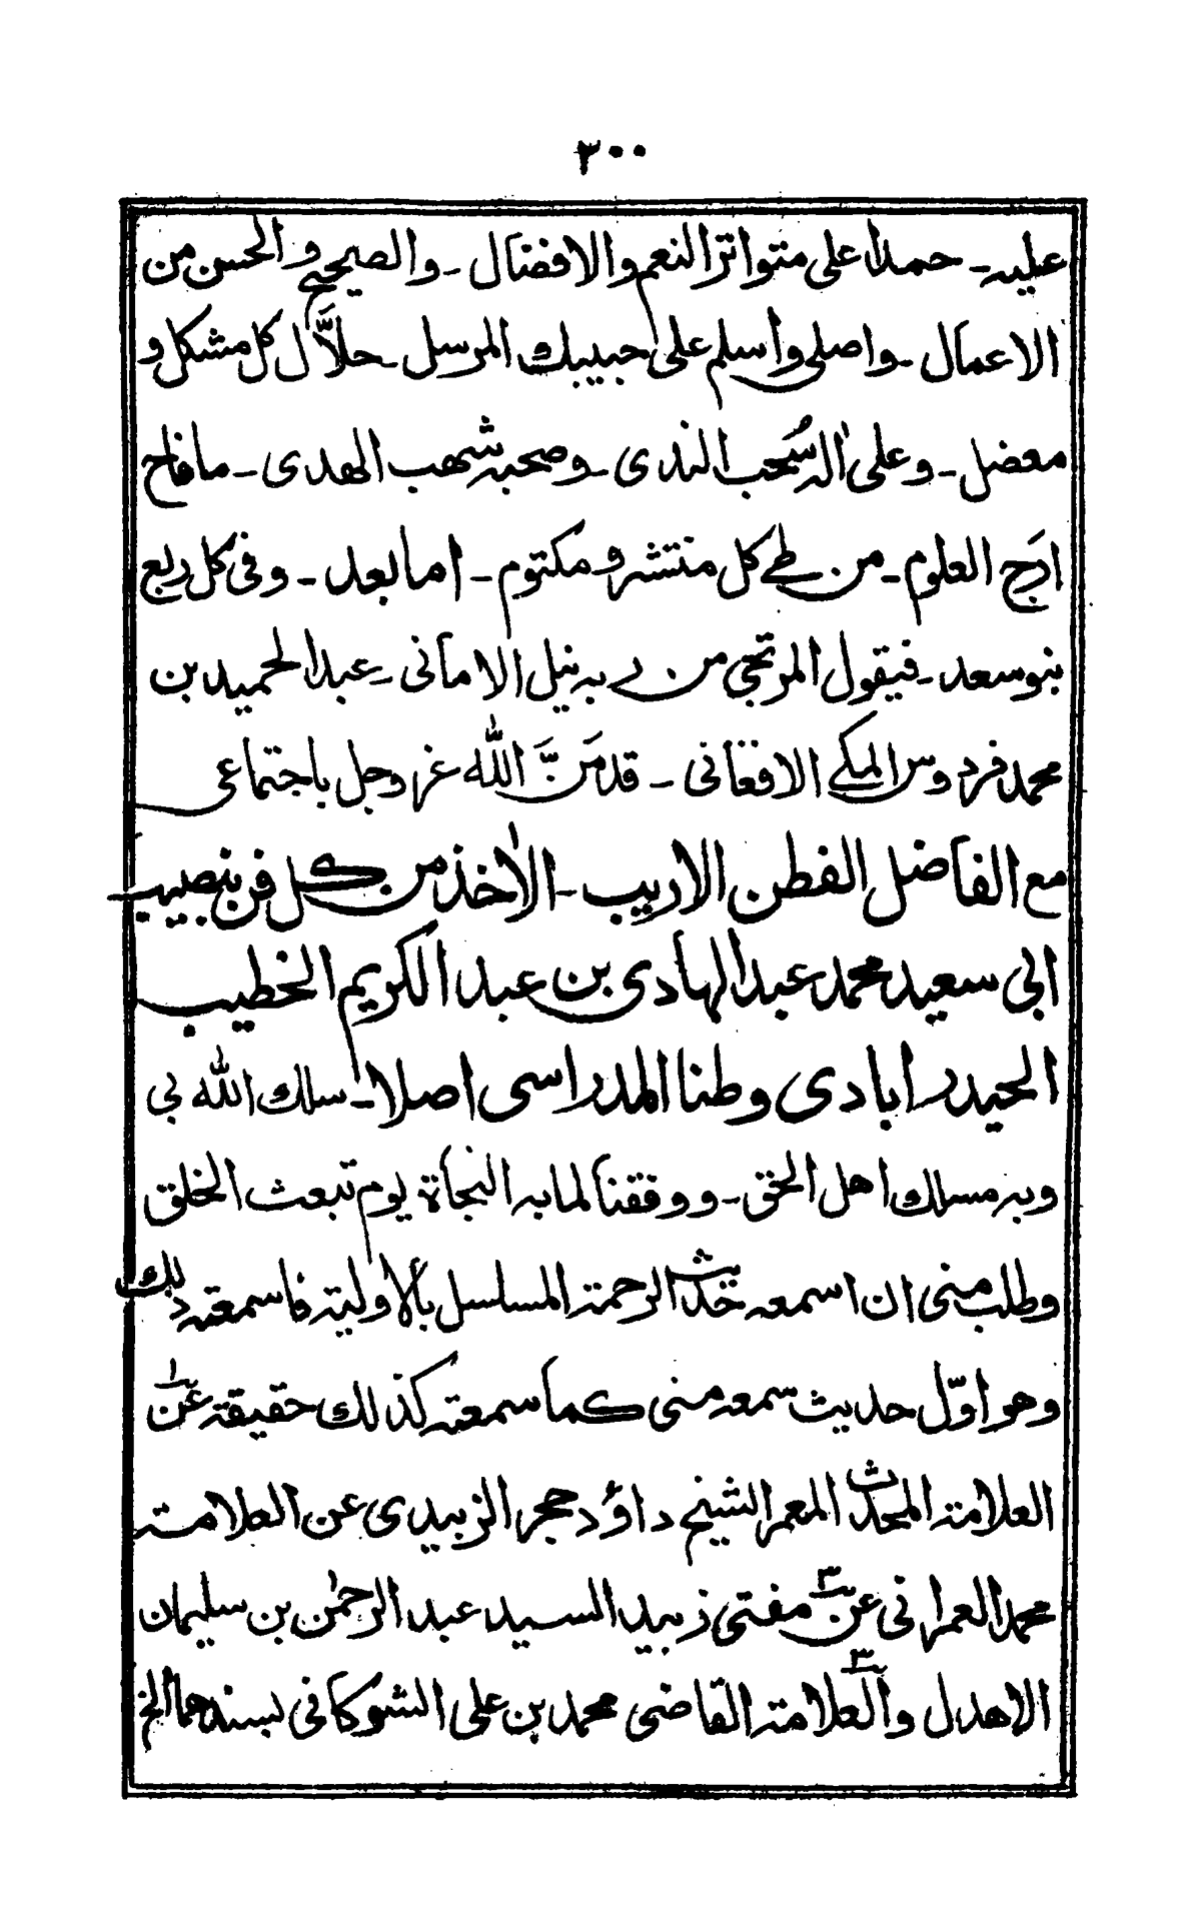 ٣٠٠
عليه ـ حمدا على متواتر النعم والافضال ـ والصحيح والحسن من
الاعمال ـ واصلى وأسلم على حبيبك المرسل ـ حلاَّل كل مشكل و
معضل ـ وعلى اٰله سُحب الندى ـ وصحبه شهب الهدى ـ ما فاح
ارَج العلوم ـ من طے كل منتشر ومكتوم ـ اما بعد ـ وفى كل ربع
بنو سعد ـ فيقول المرتجى من ربه نيل الامانى ـ عبد الحميد بن
محمد فردوس المكے الافغانى ـ قد مَنَّ الله عز وجل باجتماعى
مع الفاضل الفطن الاريب ـ الاٰخذ من كل فن بنصيب
ابى سعيد محمد عبد الهادى بن عبد الكريم الخطيب
الحيدرابادى وطنا المدراسى اصلا ـ سلك الله بى
وبه مسلك اهل الحق ـ ووفقنا لما به النجاة يوم تبعث الخلق
وطلب منى ان اسمعه حديث الرحمة المسلسل بالاولية فاسمعته ذلك
وهو اوّل حديث سمعه منى كما سمعته كذلك حقيقة عن ١
العلامة المحدث المعمر الشيخ داؤد حجر الزبيدى عن العلامة
محمد العمرانى عن ٣ مفتى زبيد السيد عبد الرحمٰن بن سليمان
الاهدل والعلامة ٣ القاضى محمد بن على الشوكانى بسندهما الخ